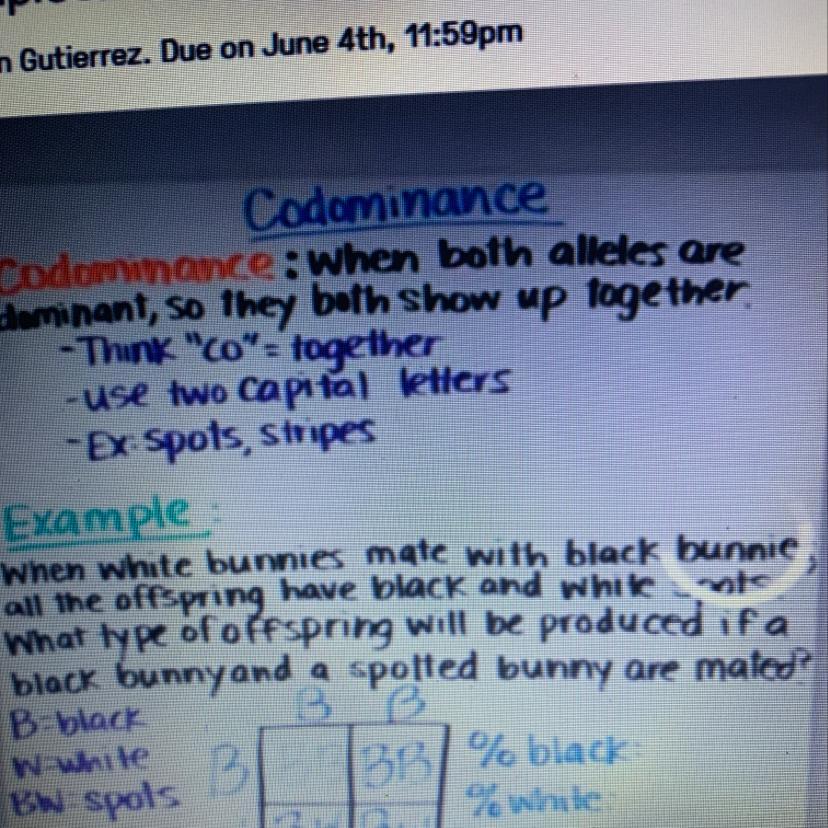 n Gutierrez. Due on June 4th, 11:59pm
Codominance
Codominance: when both alleles are
dominant, so they both show up together.
-Think "co" = together
-use two capital letters
-Ex: spots, stripes
Example:
When white bunnies mate with black bunnie,
all the offspring have black and white
What type of offspring will be produced if a
black bunny and a spotted bunny are mated?
B B
B=black
W=white
B BB % black:
BW=spots
% white: